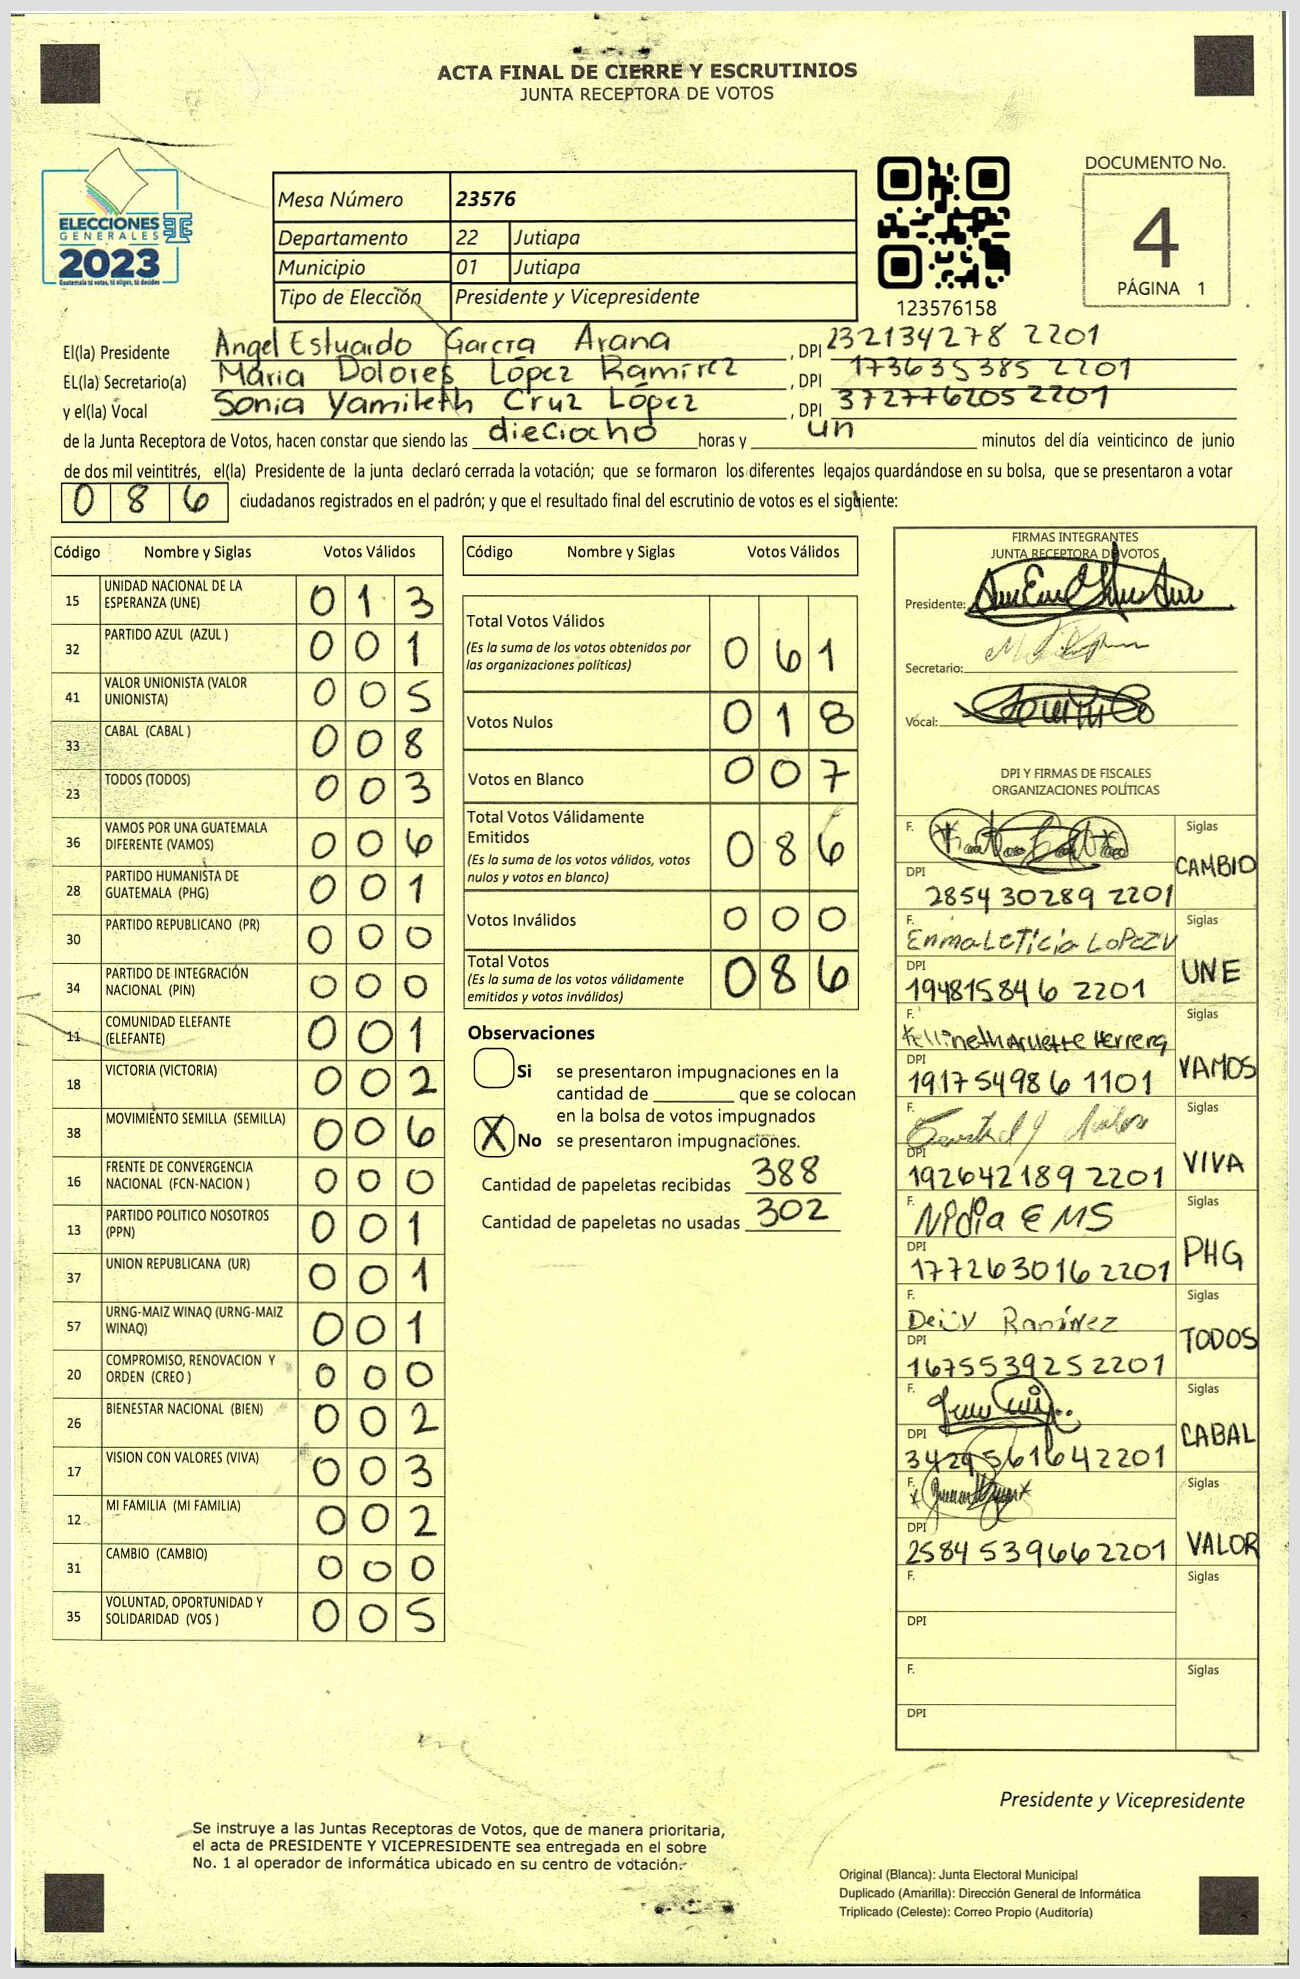 ACTA FINAL DE CIERRE Y ESCRUTINIOS
JUNTA RECEPTORA DE VOTOS
ELECCIONES
GENERALES
2023
Guatemala tú votas, tú eliges, tú decides
Mesa Número 23576
Departamento 22 Jutiapa
Municipio 01 Jutiapa
Tipo de Elección Presidente y Vicepresidente
123576158
DOCUMENTO No.
4
PÁGINA 1
El(la) Presidente Angel Estuardo García Arana , DPI 232134278 2201
EL(la) Secretario(a) Maria Dolores López Ramírez , DPI 173635385 2201
y el(la) Vocal Sonia Yamileth Cruz López , DPI 372776205 2201
de la Junta Receptora de Votos, hacen constar que siendo las dieciocho horas y un minutos del día veinticinco de junio
de dos mil veintitrés, el(la) Presidente de la junta declaró cerrada la votación; que se formaron los diferentes legajos guardándose en su bolsa, que se presentaron a votar
0 8 6 ciudadanos registrados en el padrón; y que el resultado final del escrutinio de votos es el siguiente:
Código Nombre y Siglas Votos Válidos
15 UNIDAD NACIONAL DE LA ESPERANZA (UNE) 0 1 3
32 PARTIDO AZUL (AZUL ) 0 0 1
41 VALOR UNIONISTA (VALOR UNIONISTA) 0 0 5
33 CABAL (CABAL ) 0 0 8
23 TODOS (TODOS) 0 0 3
36 VAMOS POR UNA GUATEMALA DIFERENTE (VAMOS) 0 0 6
28 PARTIDO HUMANISTA DE GUATEMALA (PHG) 0 0 1
30 PARTIDO REPUBLICANO (PR) 0 0 0
34 PARTIDO DE INTEGRACIÓN NACIONAL (PIN) 0 0 0
11 COMUNIDAD ELEFANTE (ELEFANTE) 0 0 1
18 VICTORIA (VICTORIA) 0 0 2
38 MOVIMIENTO SEMILLA (SEMILLA) 0 0 6
16 FRENTE DE CONVERGENCIA NACIONAL (FCN-NACION ) 0 0 0
13 PARTIDO POLITICO NOSOTROS (PPN) 0 0 1
37 UNION REPUBLICANA (UR) 0 0 1
57 URNG-MAIZ WINAQ (URNG-MAIZ WINAQ) 0 0 1
20 COMPROMISO, RENOVACION Y ORDEN (CREO ) 0 0 0
26 BIENESTAR NACIONAL (BIEN) 0 0 2
17 VISION CON VALORES (VIVA) 0 0 3
12 MI FAMILIA (MI FAMILIA) 0 0 2
31 CAMBIO (CAMBIO) 0 0 0
35 VOLUNTAD, OPORTUNIDAD Y SOLIDARIDAD (VOS ) 0 0 5
Código Nombre y Siglas Votos Válidos
Total Votos Válidos 0 6 1
(Es la suma de los votos obtenidos por
las organizaciones políticas)
Votos Nulos 0 1 8
Votos en Blanco 0 0 7
Total Votos Válidamente
Emitidos 0 8 6
(Es la suma de los votos válidos, votos
nulos y votos en blanco)
Votos Inválidos 0 0 0
Total Votos 0 8 6
(Es la suma de los votos válidamente
emitidos y votos inválidos)
Observaciones
Si se presentaron impugnaciones en la
cantidad de ________ que se colocan
en la bolsa de votos impugnados
X No se presentaron impugnaciones.
Cantidad de papeletas recibidas 388
Cantidad de papeletas no usadas 302
FIRMAS INTEGRANTES
JUNTA RECEPTORA DE VOTOS
Presidente:
Secretario:
Vocal:
DPI Y FIRMAS DE FISCALES
ORGANIZACIONES POLÍTICAS
F. Siglas
CAMBIO
DPI
2854 30289 2201
F. Siglas
Enma Leticia Lopez V
UNE
DPI
194815846 2201
F. Siglas
Herrera
VAMOS
DPI
191754986 1101
F. Siglas
VIVA
DPI
192642189 2201
F. Siglas
Nidia E MS
PHG
DPI
177263016 2201
F. Siglas
Ramírez
TODOS
DPI
167553925 2201
F. Siglas
CABAL
DPI
342956164 2201
F. Siglas
VALOR
DPI
2584 53966 2201
F. Siglas
DPI
F. Siglas
DPI
Presidente y Vicepresidente
Se instruye a las Juntas Receptoras de Votos, que de manera prioritaria,
el acta de PRESIDENTE Y VICEPRESIDENTE sea entregada en el sobre
No. 1 al operador de informática ubicado en su centro de votación.
Original (Blanca): Junta Electoral Municipal
Duplicado (Amarilla): Dirección General de Informática
Triplicado (Celeste): Correo Propio (Auditoría)